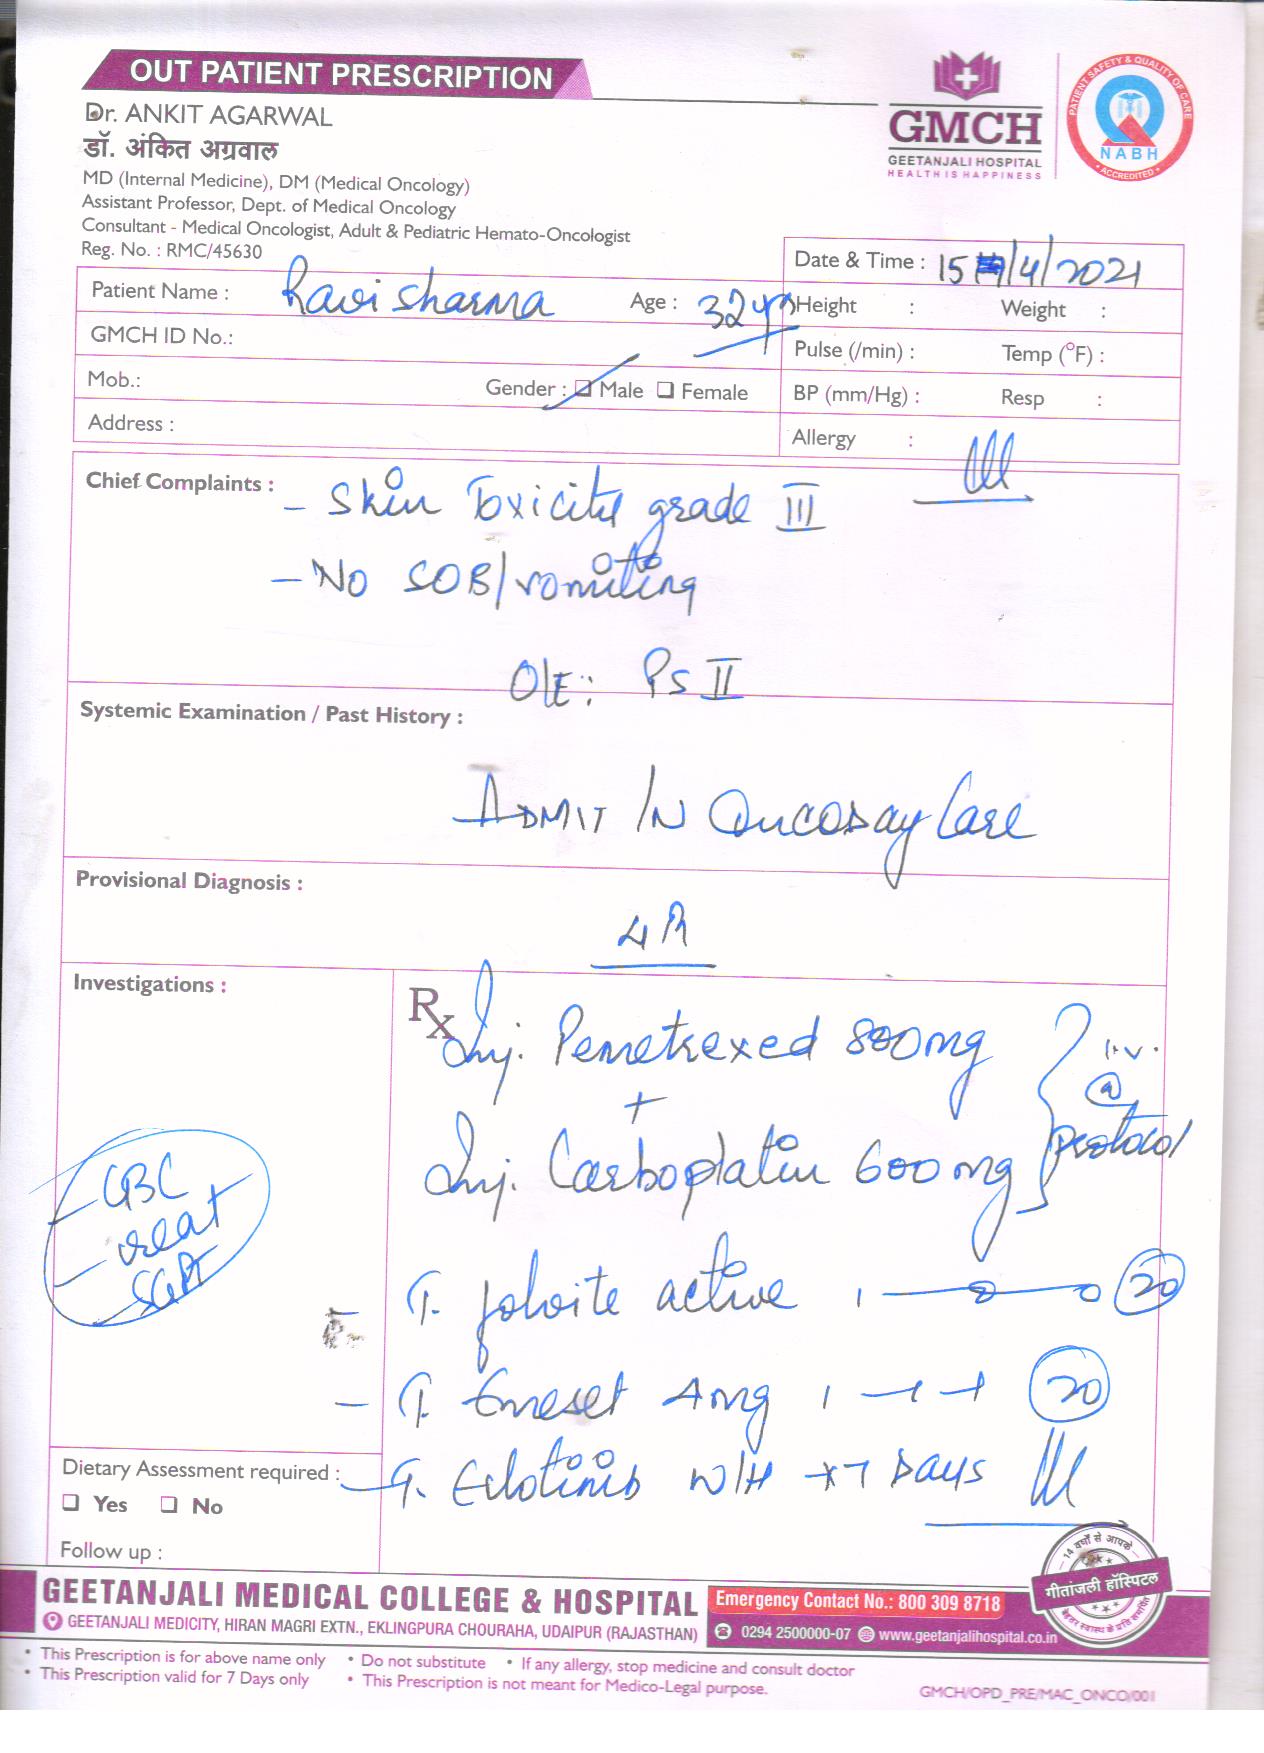 OUT PATIENT PRESCRIPTION
Dr. ANKIT AGARWAL
डॉ. अंकित अग्रवाल
MD (Internal Medicine), DM (Medical Oncology)
Assistant Professor, Dept. of Medical Oncology
Consultant - Medical Oncologist, Adult & Pediatric Hemato-Oncologist
Reg. No. : RMC/45630
GMCH
GEETANJALI HOSPITAL
HEALTH IS HAPPINESS
PATIENT SAFETY & QUALITY OF CARE
NABH
ACCREDITED
Date & Time : 15/4/2021
Patient Name : Ravi Sharma Age : 32yrs
Height : Weight :
GMCH ID No.:
Pulse (/min) : Temp (°F) :
Mob.: Gender : Male Female
BP (mm/Hg) : Resp :
Address :
Allergy :
Chief Complaints : - Skin Toxicity grade III
- No SOB/vomiting
O/E: PS II
Systemic Examination / Past History :
ADMIT IN Oncoday Care
Provisional Diagnosis :
Investigations :
CBC
creat
SGPT
Rx
Inj. Pemetrexed 800mg
+
Inj. Carboplatin 600mg
i.v.
@
Protocol
T. folvite active 1-0-0 20
- T. Emeset 4mg 1-1-1 20
- T. Erlotinib W/H x7 Days
Dietary Assessment required :
Yes No
Follow up :
14 वर्षों से आपके
गीतांजली हॉस्पिटल
बेहतर स्वास्थ के प्रति समर्पित
GEETANJALI MEDICAL COLLEGE & HOSPITAL
GEETANJALI MEDICITY, HIRAN MAGRI EXTN., EKLINGPURA CHOURAHA, UDAIPUR (RAJASTHAN)
Emergency Contact No.: 800 309 8718
0294 2500000-07 www.geetanjalihospital.co.in
• This Prescription is for above name only • Do not substitute • If any allergy, stop medicine and consult doctor
• This Prescription valid for 7 Days only • This Prescription is not meant for Medico-Legal purpose.
GMCH/OPD_PRE/MAC_ONCO/001